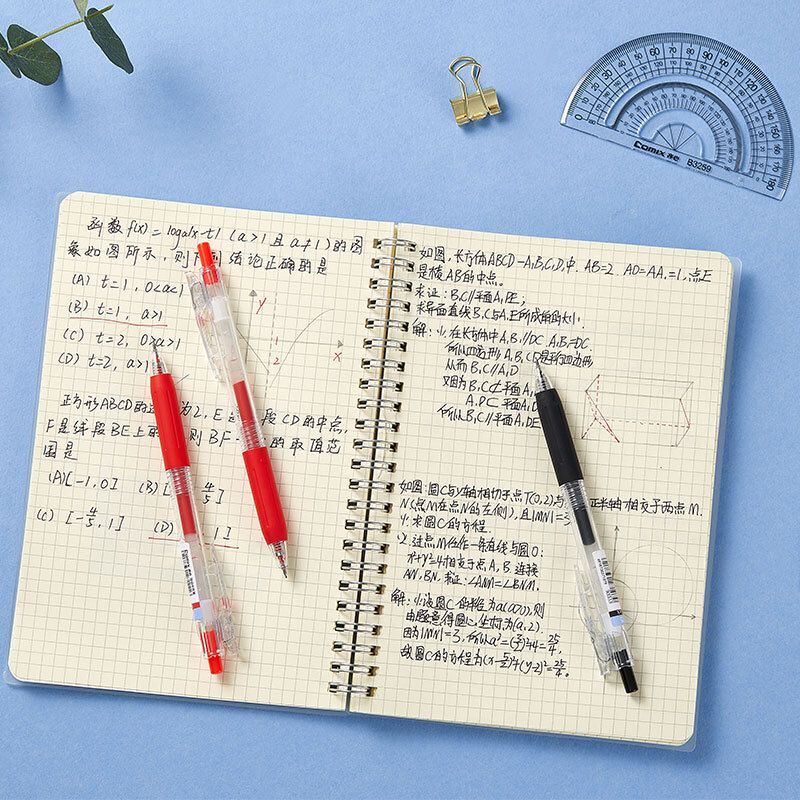 函数 f(x)=loga|x-t| (a>1且a≠1)的图
象如图所示,则 结论正确的是
(A) t=1, 0<a<1
(B) t=1, a>1
(C) t=2, 0>a>1
(D) t=2, a>1
y
x
1
2
正方形ABCD的 为2, E 段CD的中点,
F是线段BE上的 则BF· 的取值范
围是
(A)[-1,0] (B)[ 4/5]
(C) [-4/5,1] (D) 1]
如图,长方体ABCD-A₁B₁C₁D₁中, AB=2. AD=AA₁=1,点E
是棱AB的中点。
求证: B₁C//平面A₁DE;
求异面直线B₁C与A₁E所成角的大小.
解: 在长方体中A₁B₁//DC, A₁B₁=DC,
所以四边形A₁B₁CD是平行四边形
从而B₁C//A₁D
又因为B₁C⊄平面A₁
A₁D⊂平面A₁D
所以B₁C//平面A₁DE
如图:圆C与y轴相切于点T(0,2)与 正半轴相交于两点M.
N(点M在点N的左侧),且|MN|=3
求圆C的方程
2.过点M任作一条直线与圆O:
x²+y²=4相交于点A,B,连接
AN,BN,求证:∠ANM=∠BNM.
解: 设圆C的半径为a(a>0),则
由题意得圆心坐标为(a,2).
因为|MN|=3,所以a²=(3/2)²+4=25/4,
故圆C的方程为(x-5/2)²+(y-2)²=25/4。
Comix 齐心 B3259